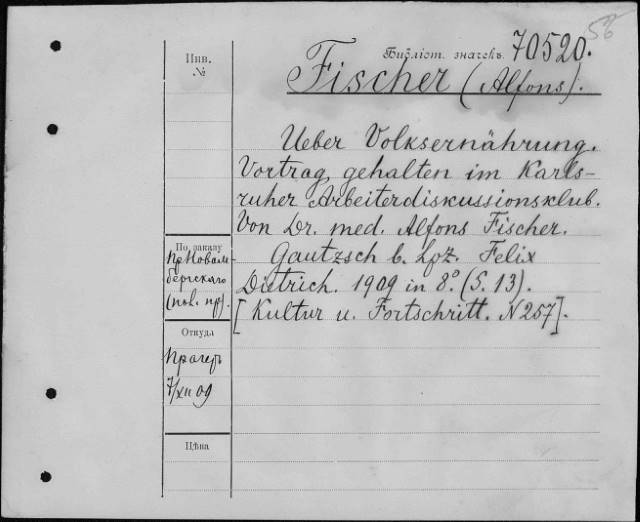 56
Библіот. значекъ 70520.
Инв.
№
Fischer (Alfons).
Ueber Volksernährung.
Vortrag, gehalten im Karls-
ruher Arbeiterdiskussionsklub.
Von Dr. med. Alfons Fischer.
Gautzsch b. Lpz. Felix
Dietrich. 1909 in 8° (S. 13).
[Kultur u. Fortschritt. N 257].
По заказу
(пов. пр).
Откуда
Прагеръ
7/XII 09
Цѣна